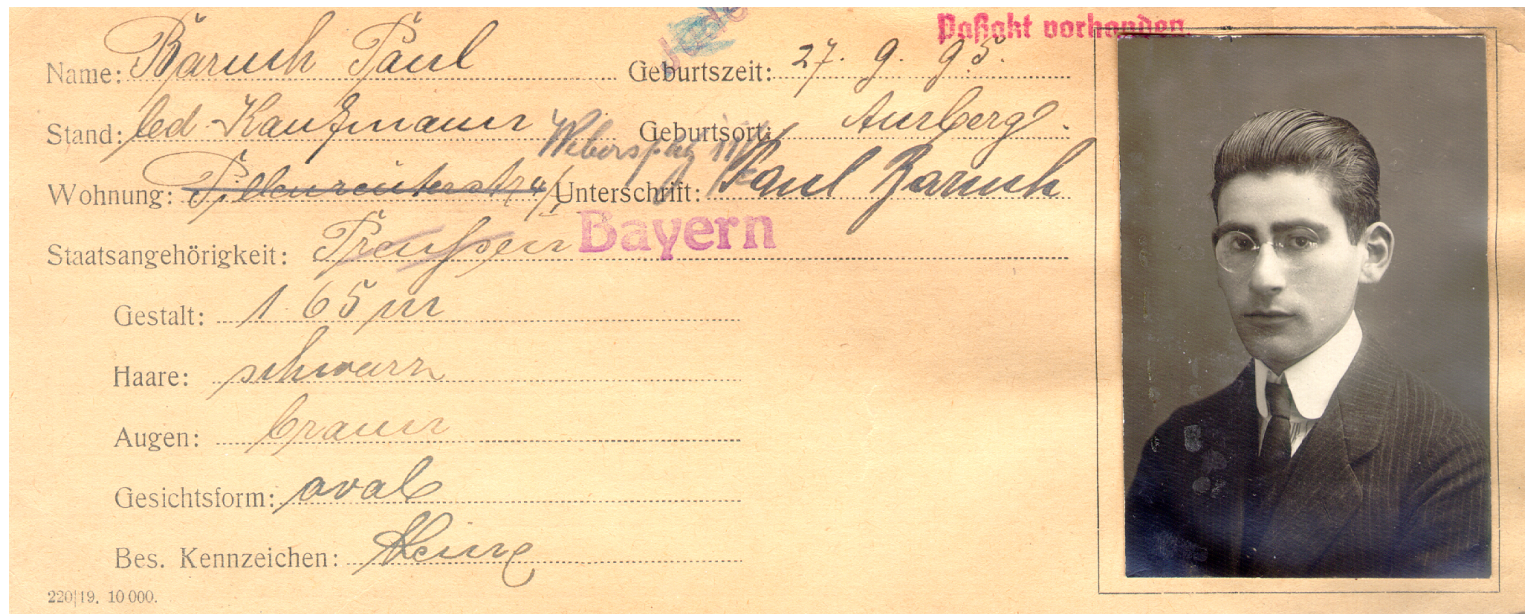 Paßakt vorhanden.
Name: Baruch Paul Geburtszeit: 27. 9. 95.
Stand: led. Kaufmann Geburtsort:
Wohnung: Unterschrift: Paul Baruch
Staatsangehörigkeit: Preußen Bayern
Gestalt: 1.65 m
Haare: schwarz
Augen: braun
Gesichtsform: oval
Bes. Kennzeichen: Keine
220|19. 10 000.